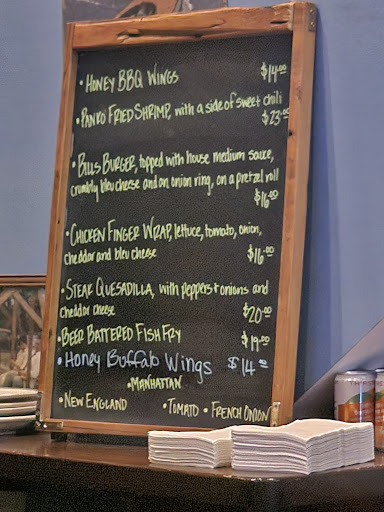 • HONEY BBQ WINGS $14.00
• PANKO FRIED SHRIMP, with a side of sweet chili
$23.00
• BILLS BURGER, topped with house medium sauce,
crumbly bleu cheese and an onion ring, on a pretzel roll
$16.00
• CHICKEN FINGER WRAP, lettuce, tomato, onion,
cheddar and bleu cheese $16.00
• STEAK QUESADILLA, with peppers + onions and
cheddar cheese $20.00
• BEER BATTERED FISH FRY $19.00
• Honey Buffalo Wings $14.00
• MANHATTAN
• NEW ENGLAND • TOMATO • FRENCH ONION